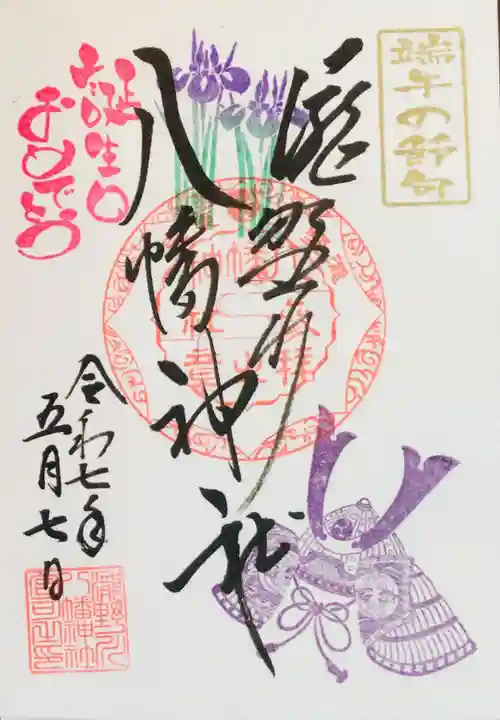 端午の節句
瀧野川
八幡神社
お誕生日
おめでとう
令和七年
五月七日
瀧野川
八幡神社